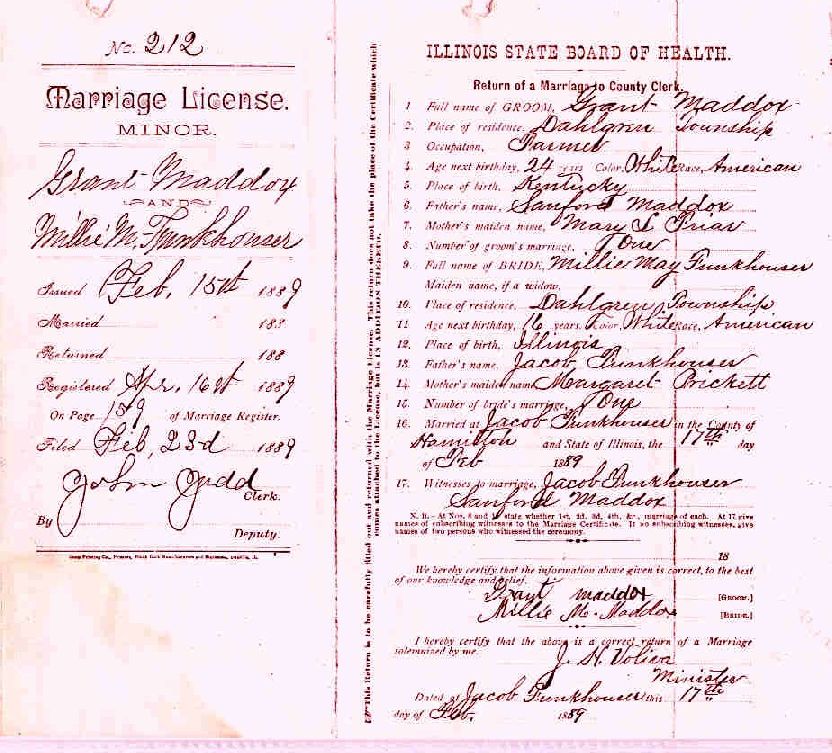 No. 212
Marriage License.
MINOR.
Grant Maddox
AND
Millie M. Funkhouser
Issued Feb, 15th 1889
Married 188
Returned 188
Registered Apr, 16th 1889
On Page 159 of Marriage Register.
Filed Feb, 23d 1889
John Judd
Clerk.
By
Deputy.
This Return is to be carefully filled out and returned with the Marriage License. This return does not take the place of the Certificate which comes attached to the License, but is IN ADDITION THERETO.
ILLINOIS STATE BOARD OF HEALTH.
Return of a Marriage to County Clerk.
1. Full name of GROOM, Grant Maddox
2. Place of residence, Dahlgren Township
3. Occupation, Farmer
4. Age next birthday, 24 years Color, White race, American
5. Place of birth, Kentucky
6. Father's name, Sanford Maddox
7. Mother's maiden name, Mary S Friar
8. Number of groom's marriage, One
9. Full name of BRIDE, Millie May Funkhouser
Maiden name, if a widow,
10. Place of residence, Dahlgren Township
11. Age next birthday, 16 years, Color, White race, American
12. Place of birth, Illinois
13. Father's name, Jacob Funkhouser
14. Mother's maiden name Margaret Prickett
15. Number of bride's marriage, One
16. Married at Jacob Funkhouser in the County of
Hamilton and State of Illinois, the 17th day
of Feb 1889
17. Witnesses to marriage, Jacob Funkhouser
Sanford Maddox
N. B.- At Nos. 8 and 15 state whether 1st, 2d, 3d, 4th, &c., marriage of each. At 17 give
names of subscribing witnesses to the Marriage Certificate. If no subscribing witnesses, give
names of two persons who witnessed the ceremony.
18
We hereby certify that the information above given is correct, to the best
of our knowledge and belief.
Grant maddox [Groom.]
Millie M. Maddox [Bride.]
I hereby certify that the above is a correct return of a Marriage
solemnized by me.
J. H. Voliva
Minister
Dated at Jacob Funkhouser this 17th
day of Feb. 1889